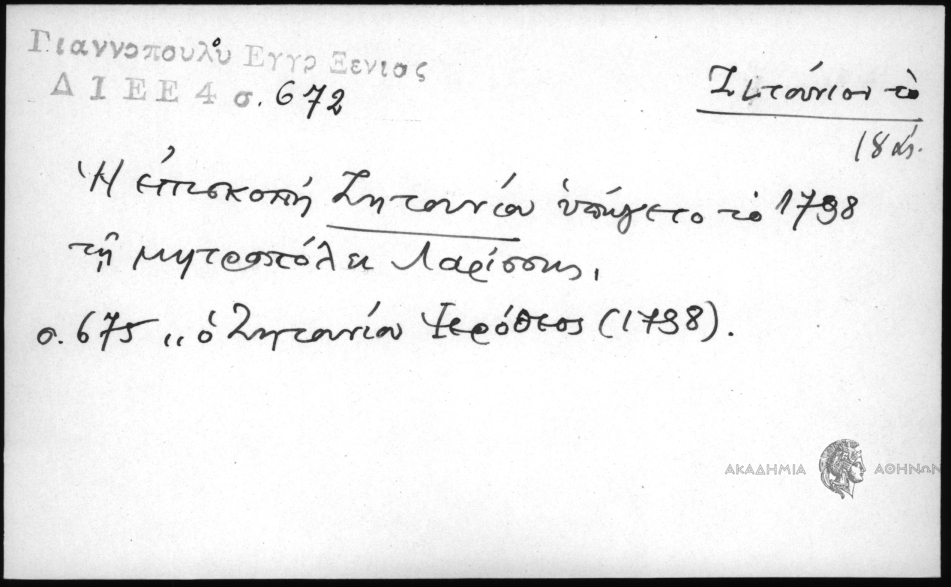 Γιαννοπούλου Εγγρ Ξενιας
Δ Ι Ε Ε 4 σ. 672
Ζητούνιον τὸ
18 αἰ.
Ἡ ἐπισκοπή Ζητουνίου ὑπήγετο τὸ 1798
τῇ μητροπόλει Λαρίσσης.
σ. 675 ,, ὁ Ζητουνίου Ἱερόθεος (1798).
ΑΚΑΔΗΜΙΑ ΑΘΗΝΩΝ